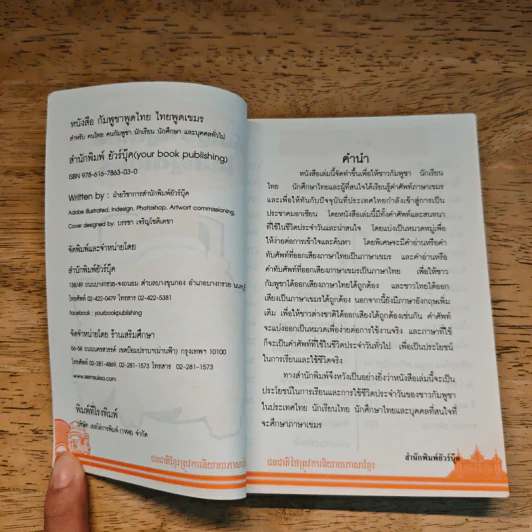 หนังสือ กัมพูชาพูดไทย ไทยพูดเขมร
สำหรับ คนไทย คนกัมพูชา นักเรียน นักศึกษา และบุคคลทั่วไป
สำนักพิมพ์ ยัวร์บุ๊ค(your book publishing)
ISBN 978-616-7863-03-0
Written by : ฝ่ายวิชาการสำนักพิมพ์ยัวร์บุ๊ค
Adobe Illustrated, Indesign, Photoshop, Artwort commissioning,
Cover designed by: บรรชา เจริญโชติเดชา
จัดพิมพ์และจำหน่ายโดย
สำนักพิมพ์ยัวร์บุ๊ค
138/49 ถนนบางกรวย-จงถนอม ตำบลบางขุนกอง อำเภอบางกรวย นนทบุรี
โทรศัพท์ 02-422-0479 โทรสาร 02-422-5381
facebook : yourbookpublishing
จัดจำหน่ายโดย ร้านเสริมศึกษา
56-58 ถนนนครสวรรค์ เขตป้อมปราบฯ(ผ่านฟ้า) กรุงเทพฯ 10100
โทรศัพท์ 02-281-4869, 02-281-1573 โทรสาร 02-281-1573
พิมพ์ที่โรงพิมพ์
จำกัด
คำนำ
หนังสือเล่มนี้จัดทำขึ้นเพื่อให้ชาวกัมพูชา นักเรียน
ไทย นักศึกษาไทยและผู้ที่สนใจได้เรียนรู้คำศัพท์ภาษาเขมร
และเพื่อให้ทันกับปัจจุบันที่ประเทศไทยกำลังเข้าสู่การเป็น
ประชาคมอาเซียน โดยหนังสือเล่มนี้มีทั้งคำศัพท์และสนทนา
ที่ใช้ในชีวิตประจำวันและน่าสนใจ โดยแบ่งเป็นหมวดหมู่เพื่อ
ให้ง่ายต่อการเข้าใจและค้นหา โดยพิเศษจะมีคำอ่านหรือคำ
ทับศัพท์ที่ออกเสียงภาษาไทยเป็นภาษาเขมร และคำอ่านหรือ
คำทับศัพท์ที่ออกเสียงภาษาเขมรเป็นภาษาไทย เพื่อให้ชาว
กัมพูชาได้ออกเสียงภาษาไทยได้ถูกต้อง และชาวไทยได้ออก
เสียงเป็นภาษาเขมรได้ถูกต้อง นอกจากนี้ยังมีภาษาอังกฤษเพิ่ม
เติม เพื่อให้ชาวต่างชาติได้ออกเสียงได้ถูกต้องเช่นกัน คำศัพท์
จะแบ่งออกเป็นหมวดเพื่อง่ายต่อการใช้งานจริง และภาษาที่ใช้
ก็จะเป็นคำศัพท์ที่ใช้ในชีวิตประจำวันทั่วไป เพื่อเป็นประโยชน์
ในการเรียนและใช้ชีวิตจริง
ทางสำนักพิมพ์จึงหวังเป็นอย่างยิ่งว่าหนังสือเล่มนี้จะเป็น
ประโยชน์ในการเรียนและการใช้ชีวิตประจำวันของชาวกัมพูชา
ในประเทศไทย นักเรียนไทย นักศึกษาไทยและบุคคลที่สนใจที่
จะศึกษาภาษาเขมร
สำนักพิมพ์ยัวร์บุ๊ค